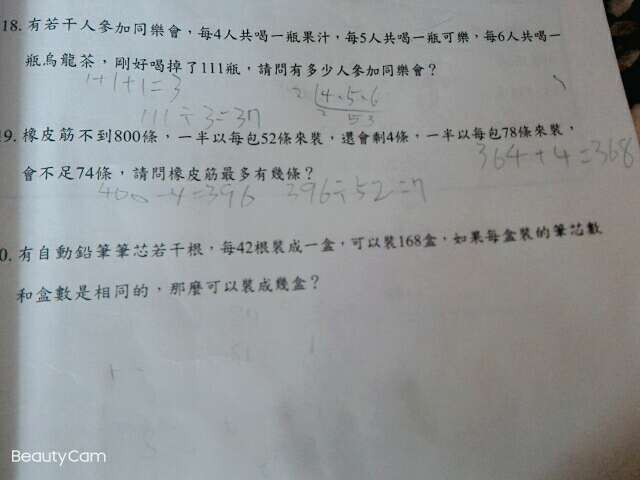 18. 有若干人參加同樂會，每4人共喝一瓶果汁，每5人共喝一瓶可樂，每6人共喝一
瓶烏龍茶，剛好喝掉了111瓶，請問有多少人參加同樂會？
1+1+1=3
2 4、5、6
111÷3=37
2 5 3
9. 橡皮筋不到800條，一半以每包52條來裝，還會剩4條，一半以每包78條來裝，
364+4=368
會不足74條，請問橡皮筋最多有幾條？
400-4=396 396÷52=7
0. 有自動鉛筆筆芯若干根，每42根裝成一盒，可以裝168盒，如果每盒裝的筆芯數
和盒數是相同的，那麼可以裝成幾盒？
BeautyCam